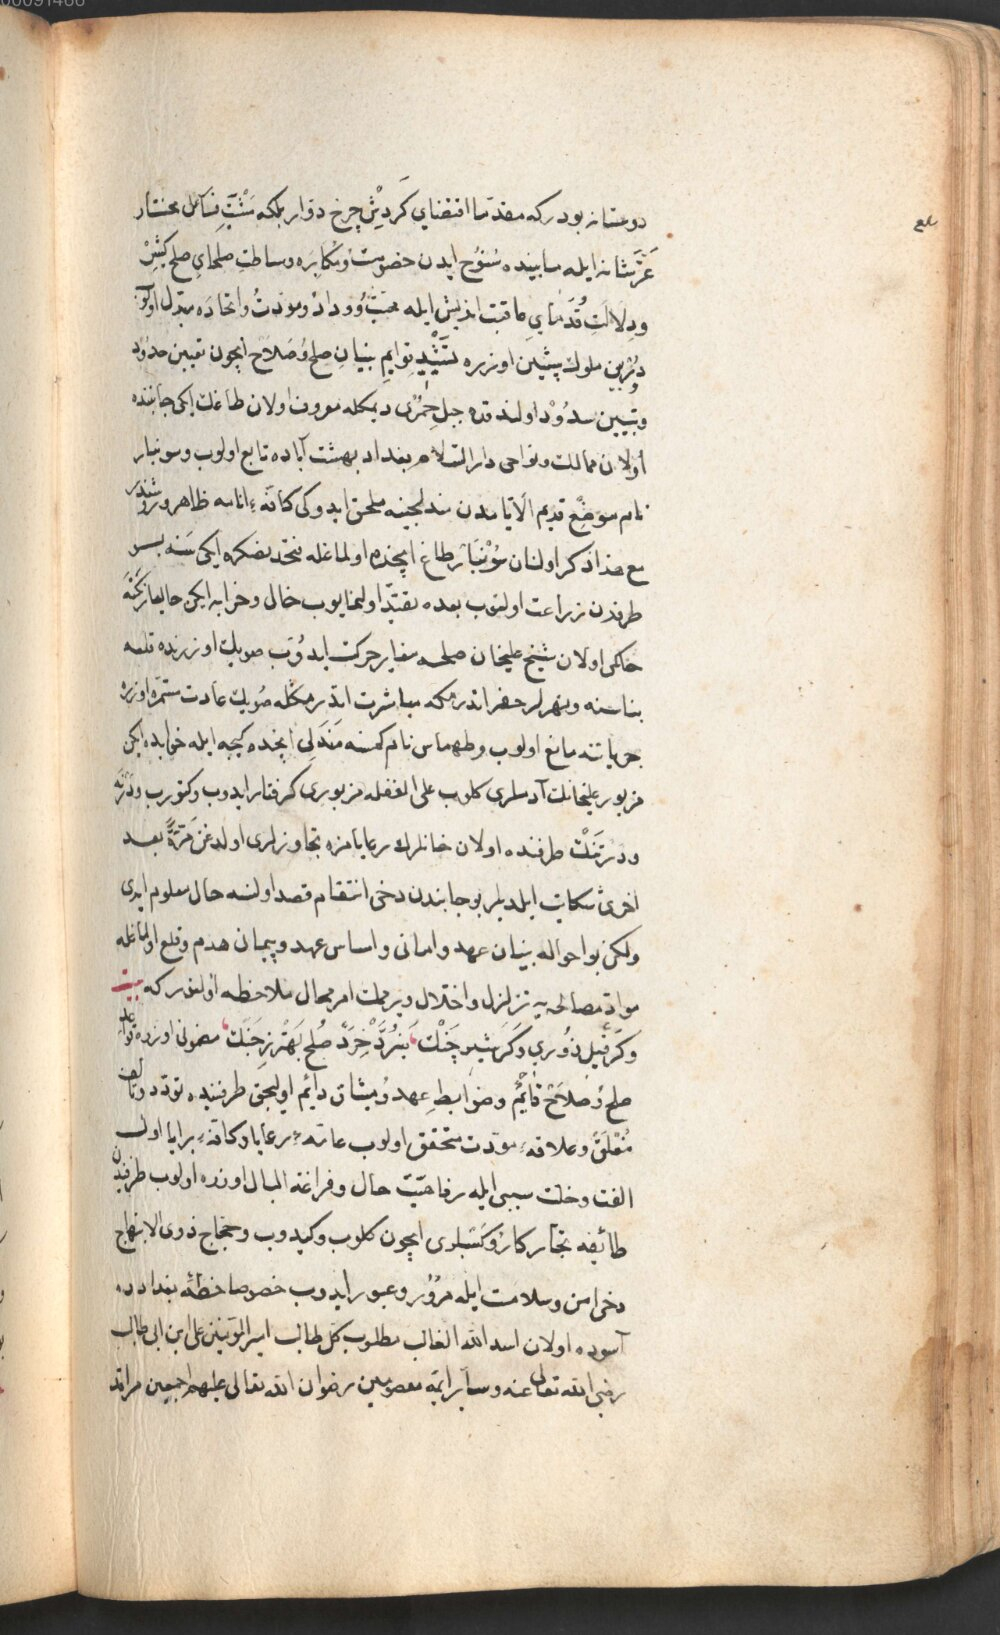 00091488
دوستانه بودر که مقدما اقتضای کردش چرخ دوّار بلکه مشیّت فاعل مختار
عزّ شانه ایله مابینده سُنوُح ایدن خصومت و مُکابَره وساطت صلحای صلح کیش
ودلالت قُدَمای عاقبت اندیش ایله محبّت وُوداد ومودّتُ واتحاده مبدل اولوب
دیُرین ملوك پیشین اوزره تشیید قوایم بنیان صلح وُصَلاح ایچون تعیین حدود
وتبیین سدُوْد اولندقده جبل حمرین دیمکله معروف اولان طاغك ایکی جانبنده
اولان ممالك ونواحی دار السّلام بغداد بهشت آباده تابع اولوب وسونبار
نام موضع قدیم الایامدن مندلجینه ملحق ایدوکی کافّهٔ انامه ظاهر وروشندر
مع هذا ذکر اولنان سُوْنبَار طاغ ایچنده اولماغله فتحدنصکره ایکی سنه بو
طرفدن زراعت اولنوب بعده تقیّد اولنمایوب خالی وخرابه ایکن حالیا زکنه
حاکمی اولان شیخ علیخان صلحه مغایر حرکت ایدُوب صویك اوزرنده قلعه
بناسنه ونهرلر حفر اتدرمکه مباشرت اتدرمکله صُویك عادت مستمرّه اوزره
جریاننه مانع اولوب وطهماس نام کمسنه مَندَلی ایچنده کیجه ایله خوابده ایکن
مزبور علیخانك آدملری کلوب علی الغفله مزبوری کرفتار ایدوب وکتورب ودرنه
ودرتنك طرفنده اولان خانلرك رعایامزه تجاوزلری اولدغن مَرّةً بعد
اخری شکایت ایلدیلر بو جانبدن دخی انتقام قصد اولنسه حال معلوم ایدی
ولکن بو احواله بنیان عهد وامانی واساس عهد وپیمان هدم وقلع اولماغله
موادّ مصالحه یه تزلزل واختلال ویرمك امر محال ملاحظه اولنور که بیت
وکر پیل زوری وکر شیر چنك بنزد خِرَد صُلح بَهْتَر زِ جَنك مضمونی اوزره قواعد
صلح وُصَلاح قائم وضوابط عهد وُمیثاق دائم اولیجق طرفینده تودّد وتألف
مُتعلّق وعلاقهٔ مودّت متحقق اولوب عامّهٔ رعایا وکافّهٔ برایا اول
الفت وخلّت سببی ایله رفاهیّت حال وفراغة البال اوزره اولوب طرفیندن
طائفه تجّار کار وُکسبلری ایچون کلوب وکیدوب وحجّاج ذوی الابتهاج
دخی امن وسلامت ایله مُرُور وعبور ایدوب خصوصا خطّهٔ بغدادده
آسوده اولان اسد الله الغالب مطلوب کل طالب امیر المؤمنین علی ابن ابی طالب
رضی الله تعالی عنه وسایر ائمّهٔ معصومین رضوان الله تعالی علیهم اجمعین مراقد